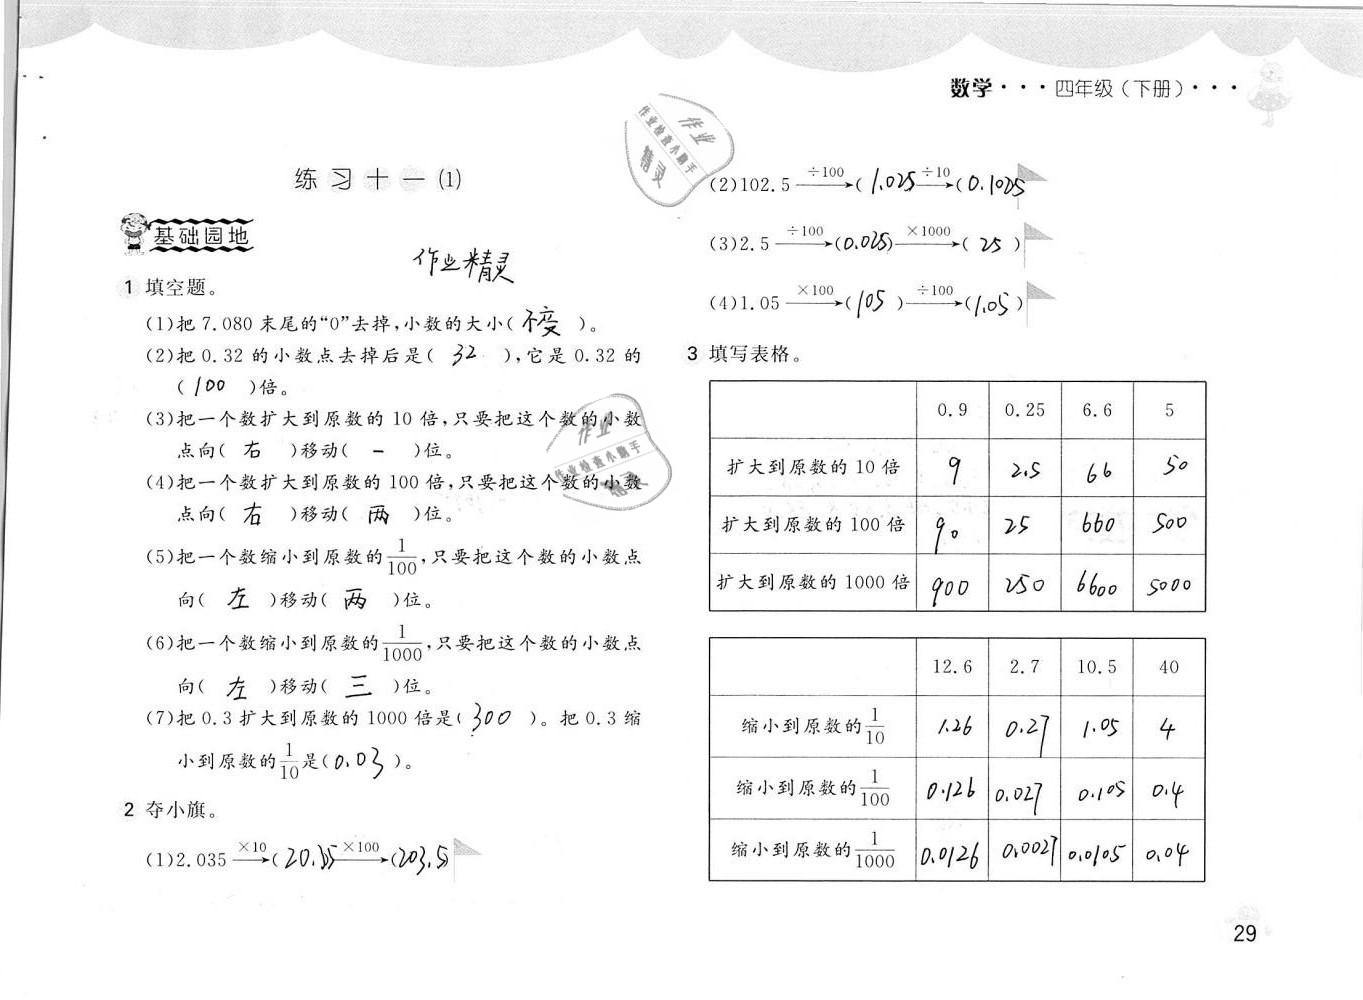 数学···四年级(下册)···
练习十一(1)
基础园地
作业精灵
1 填空题。
(1)把7.080末尾的“0”去掉,小数的大小(不变)。
(2)把0.32的小数点去掉后是(32),它是0.32的
(100)倍。
(3)把一个数扩大到原数的10倍,只要把这个数的小数
点向(右)移动(一)位。
(4)把一个数扩大到原数的100倍,只要把这个数的小数
点向(右)移动(两)位。
(5)把一个数缩小到原数的1/100,只要把这个数的小数点
向(左)移动(两)位。
(6)把一个数缩小到原数的1/1000,只要把这个数的小数点
向(左)移动(三)位。
(7)把0.3扩大到原数的1000倍是(300)。把0.3缩
小到原数的1/10是(0.03)。
2 夺小旗。
(1)2.035 ×10→(20.35 ×100→(203.5)
作业
作业检查小助手
精灵
作业
作业检查小助手
精灵
(2)102.5 ÷100→(1.025 ÷10→(0.1025
(3)2.5 ÷100→(0.025) ×1000→(25)
(4)1.05 ×100→(105) ÷100→(1.05)
3 填写表格。
0.9 0.25 6.6 5
扩大到原数的10倍 9 2.5 66 50
扩大到原数的100倍 90 25 660 500
扩大到原数的1000倍 900 250 6600 5000
12.6 2.7 10.5 40
缩小到原数的1/10 1.26 0.27 1.05 4
缩小到原数的1/100 0.126 0.027 0.105 0.4
缩小到原数的1/1000 0.0126 0.0027 0.0105 0.04
29